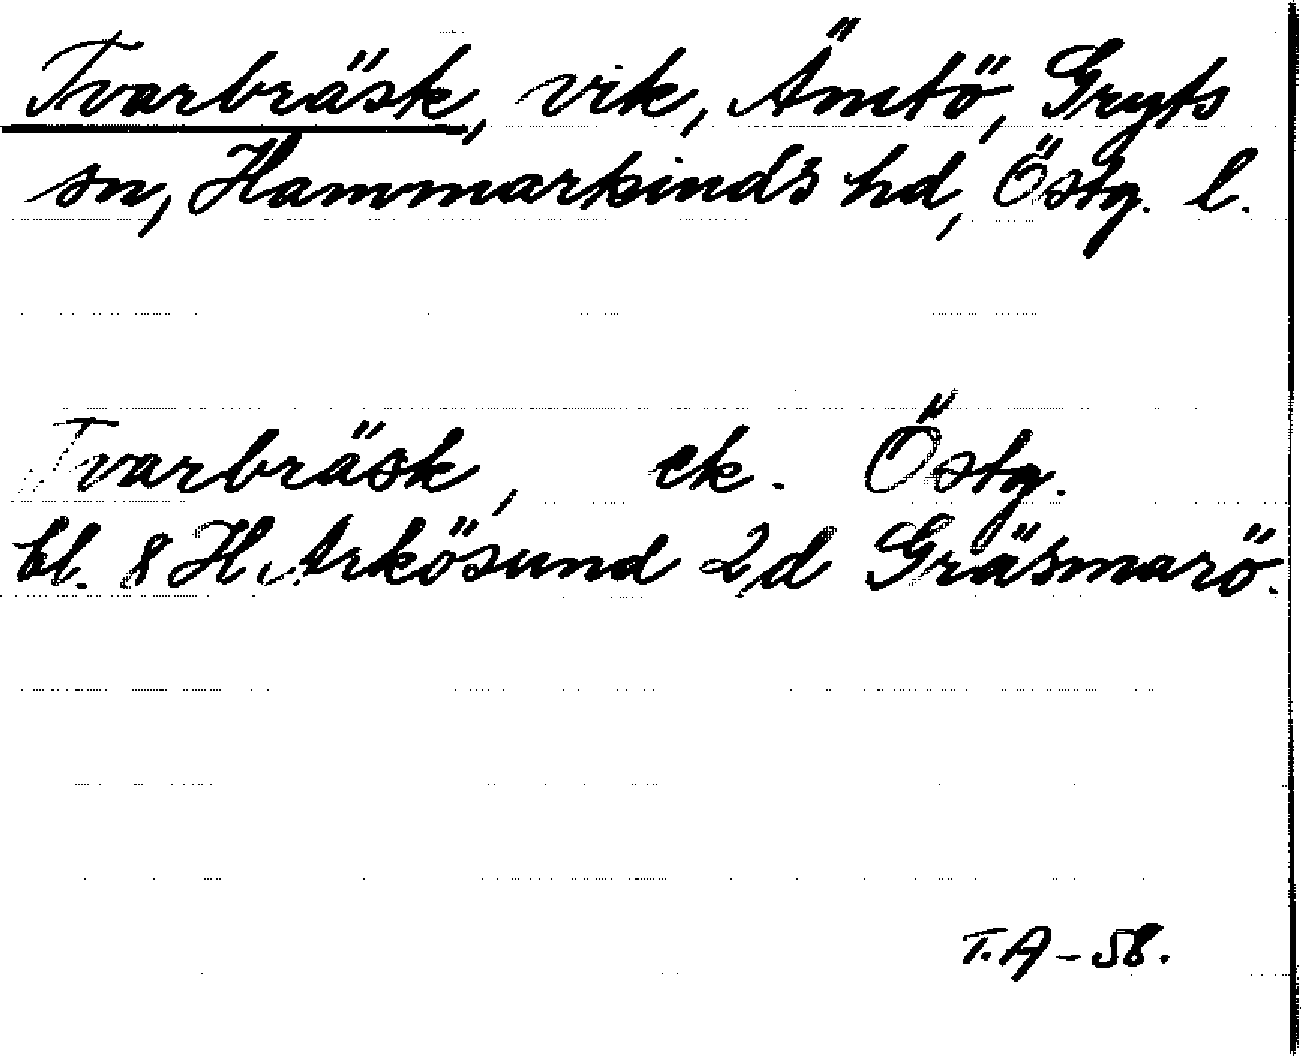 Tvarbräsk, vik, Ämtö, Gryts
sn, Hammarkinds hd, Östg. l.
Tvarbräsk, ek. Östg.
bl. 8 H Arkösund 2d Gräsmarö.
T.A-58.